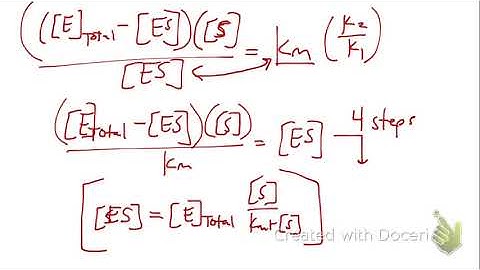 (([E]Total - [ES])([S]) / [ES] = Km (k2/k1)
([E]Total - [ES])([S]) / Km = [ES] → 4 steps
[[ES] = [E]Total [S] / Km+[S]]
Created with Doceri